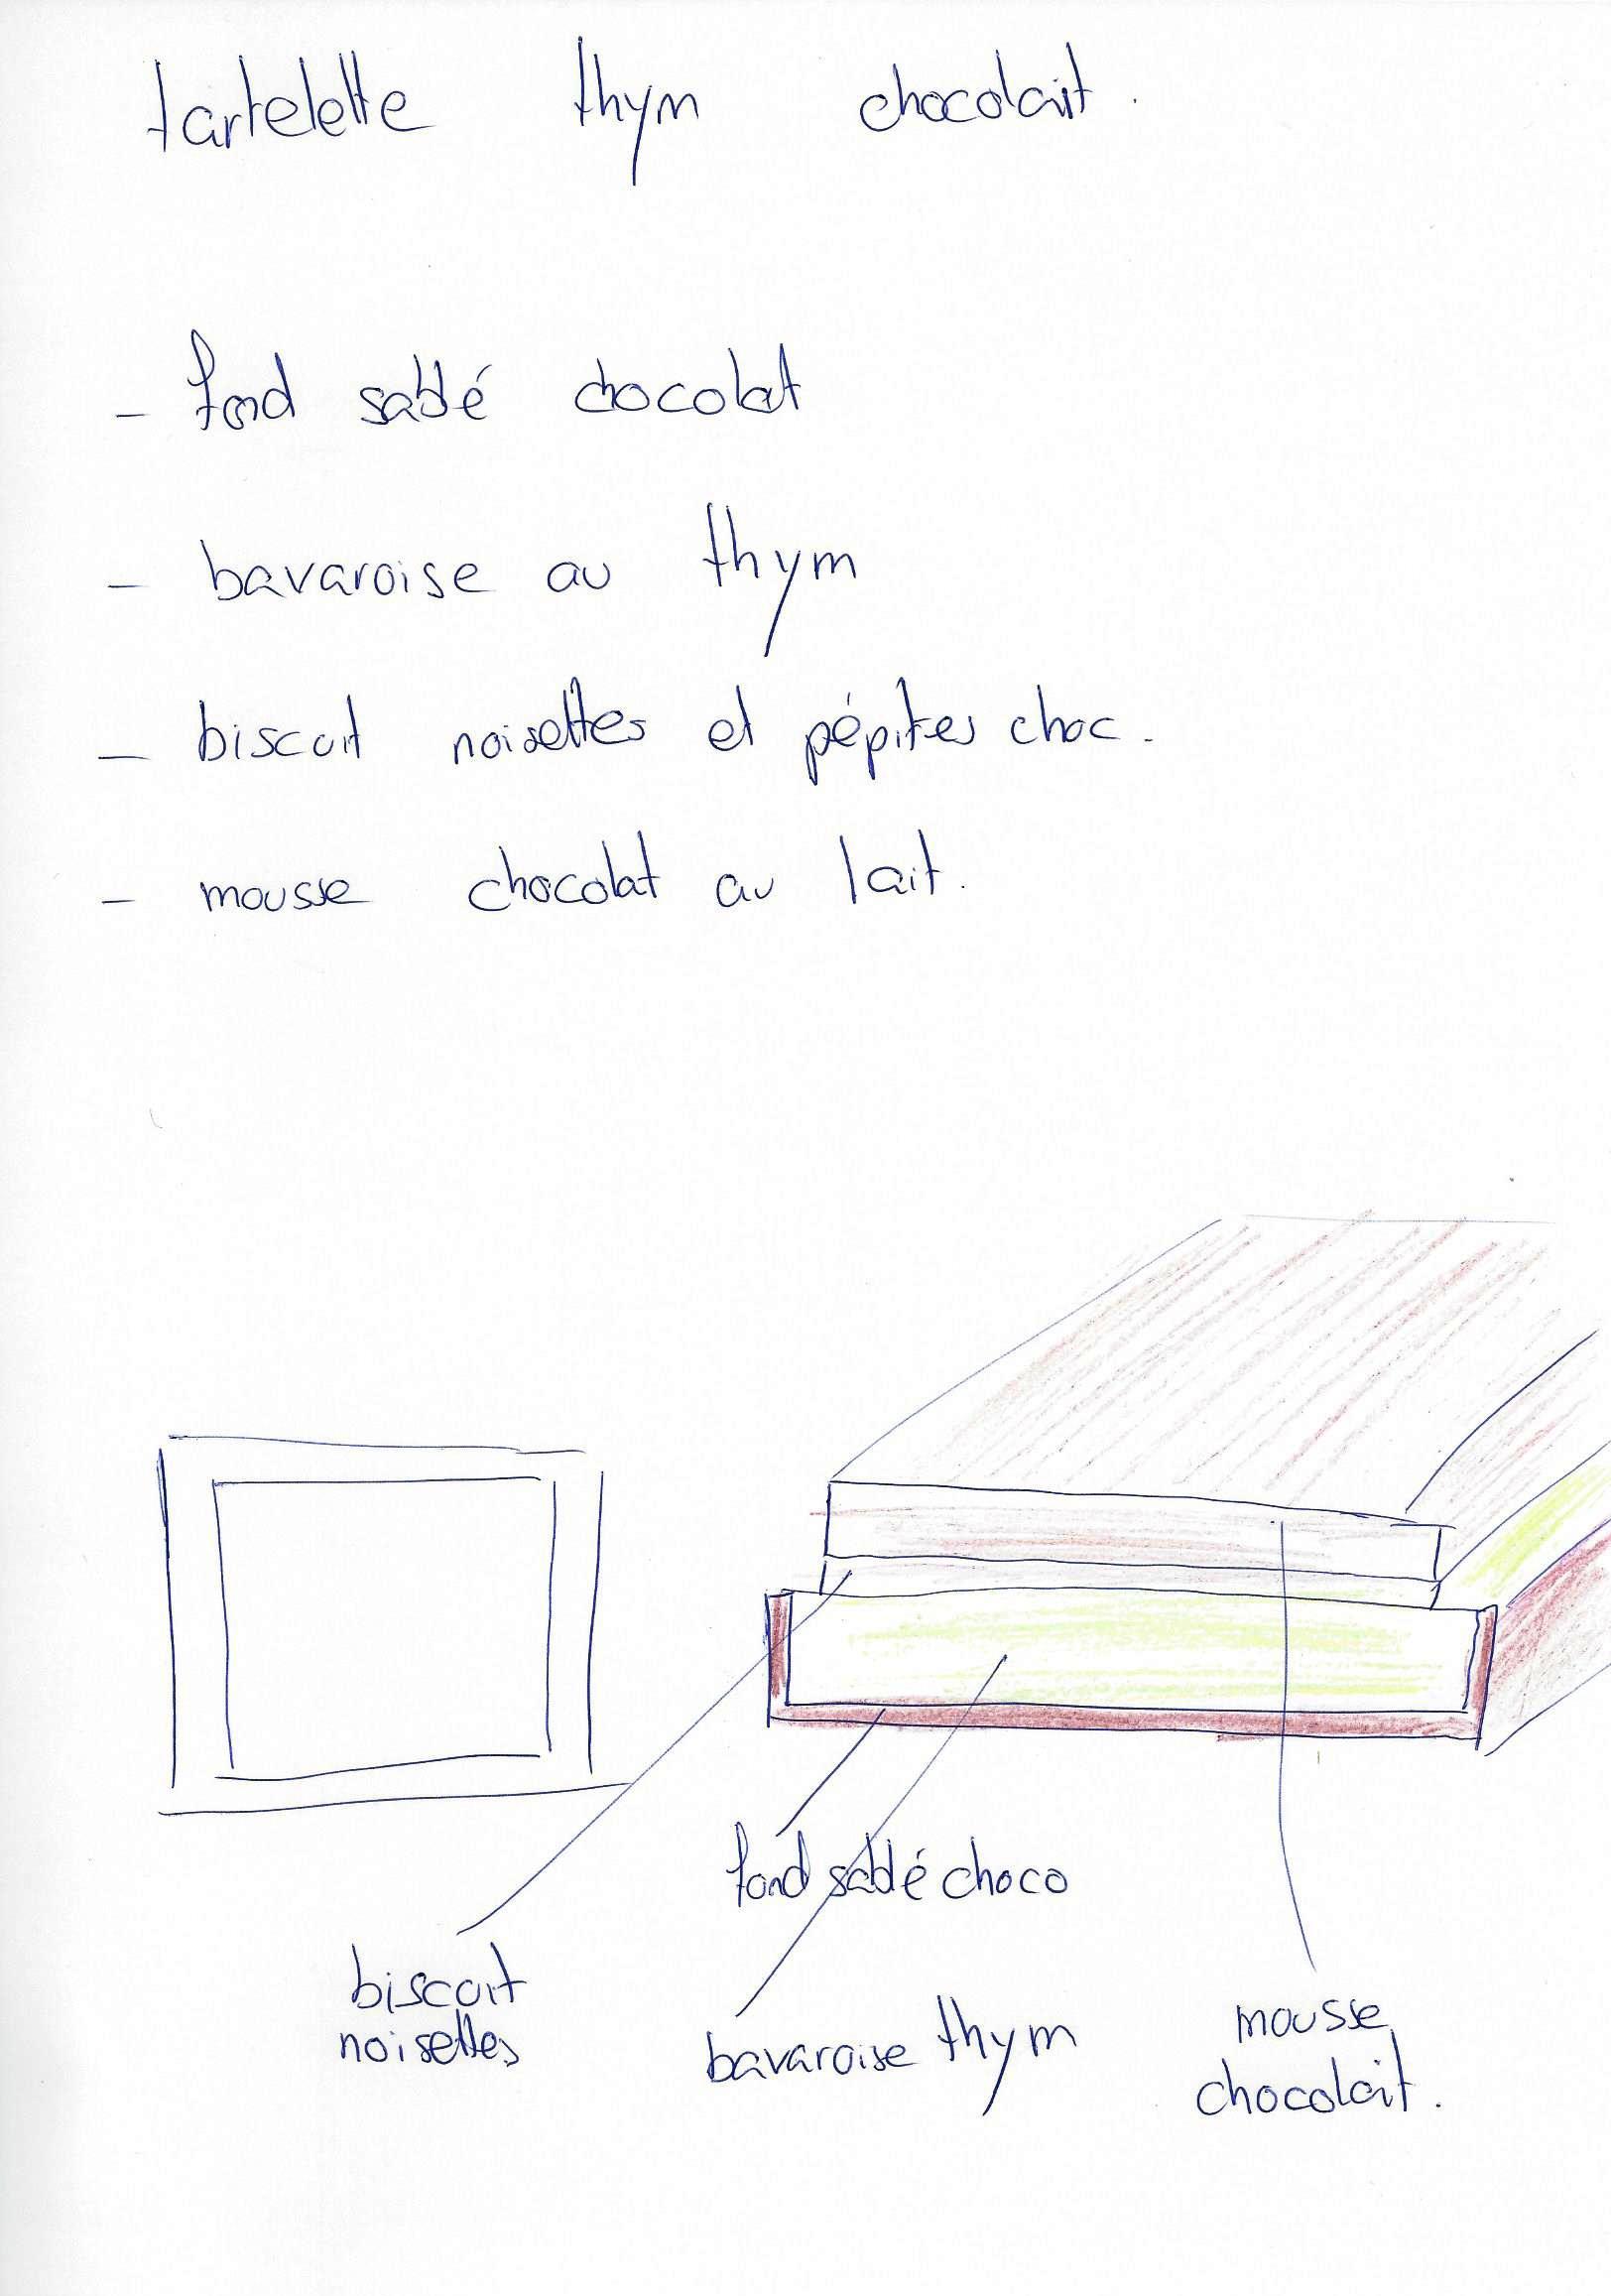 tartelette thym chocolait.
- fond sablé chocolat
- bavaroise au thym
- biscuit noisettes et pépites choc.
- mousse chocolat au lait.
fond sablé choco
biscuit
noisettes
bavaroise thym
mousse
chocolait.